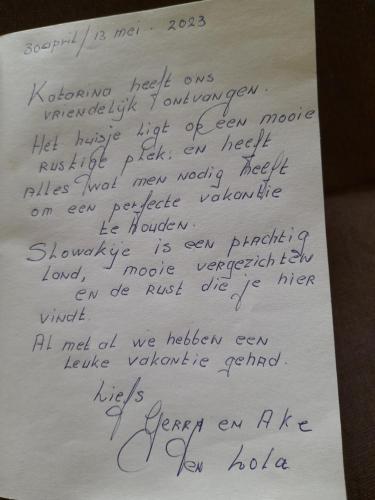 30 april / 13 mei. 2023
Katarina heeft ons
vriendelijk ontvangen.
Het huisje ligt op een mooie
rustige plek. en heeft
alles wat men nodig heeft
om een perfecte vakantie
te houden.
Slowakije is een prachtig
land, mooie vergezichten
en de rust die je hier
vindt.
Al met al we hebben een
leuke vakantie gehad.
Liefs
Gerra en Ake
en Lola